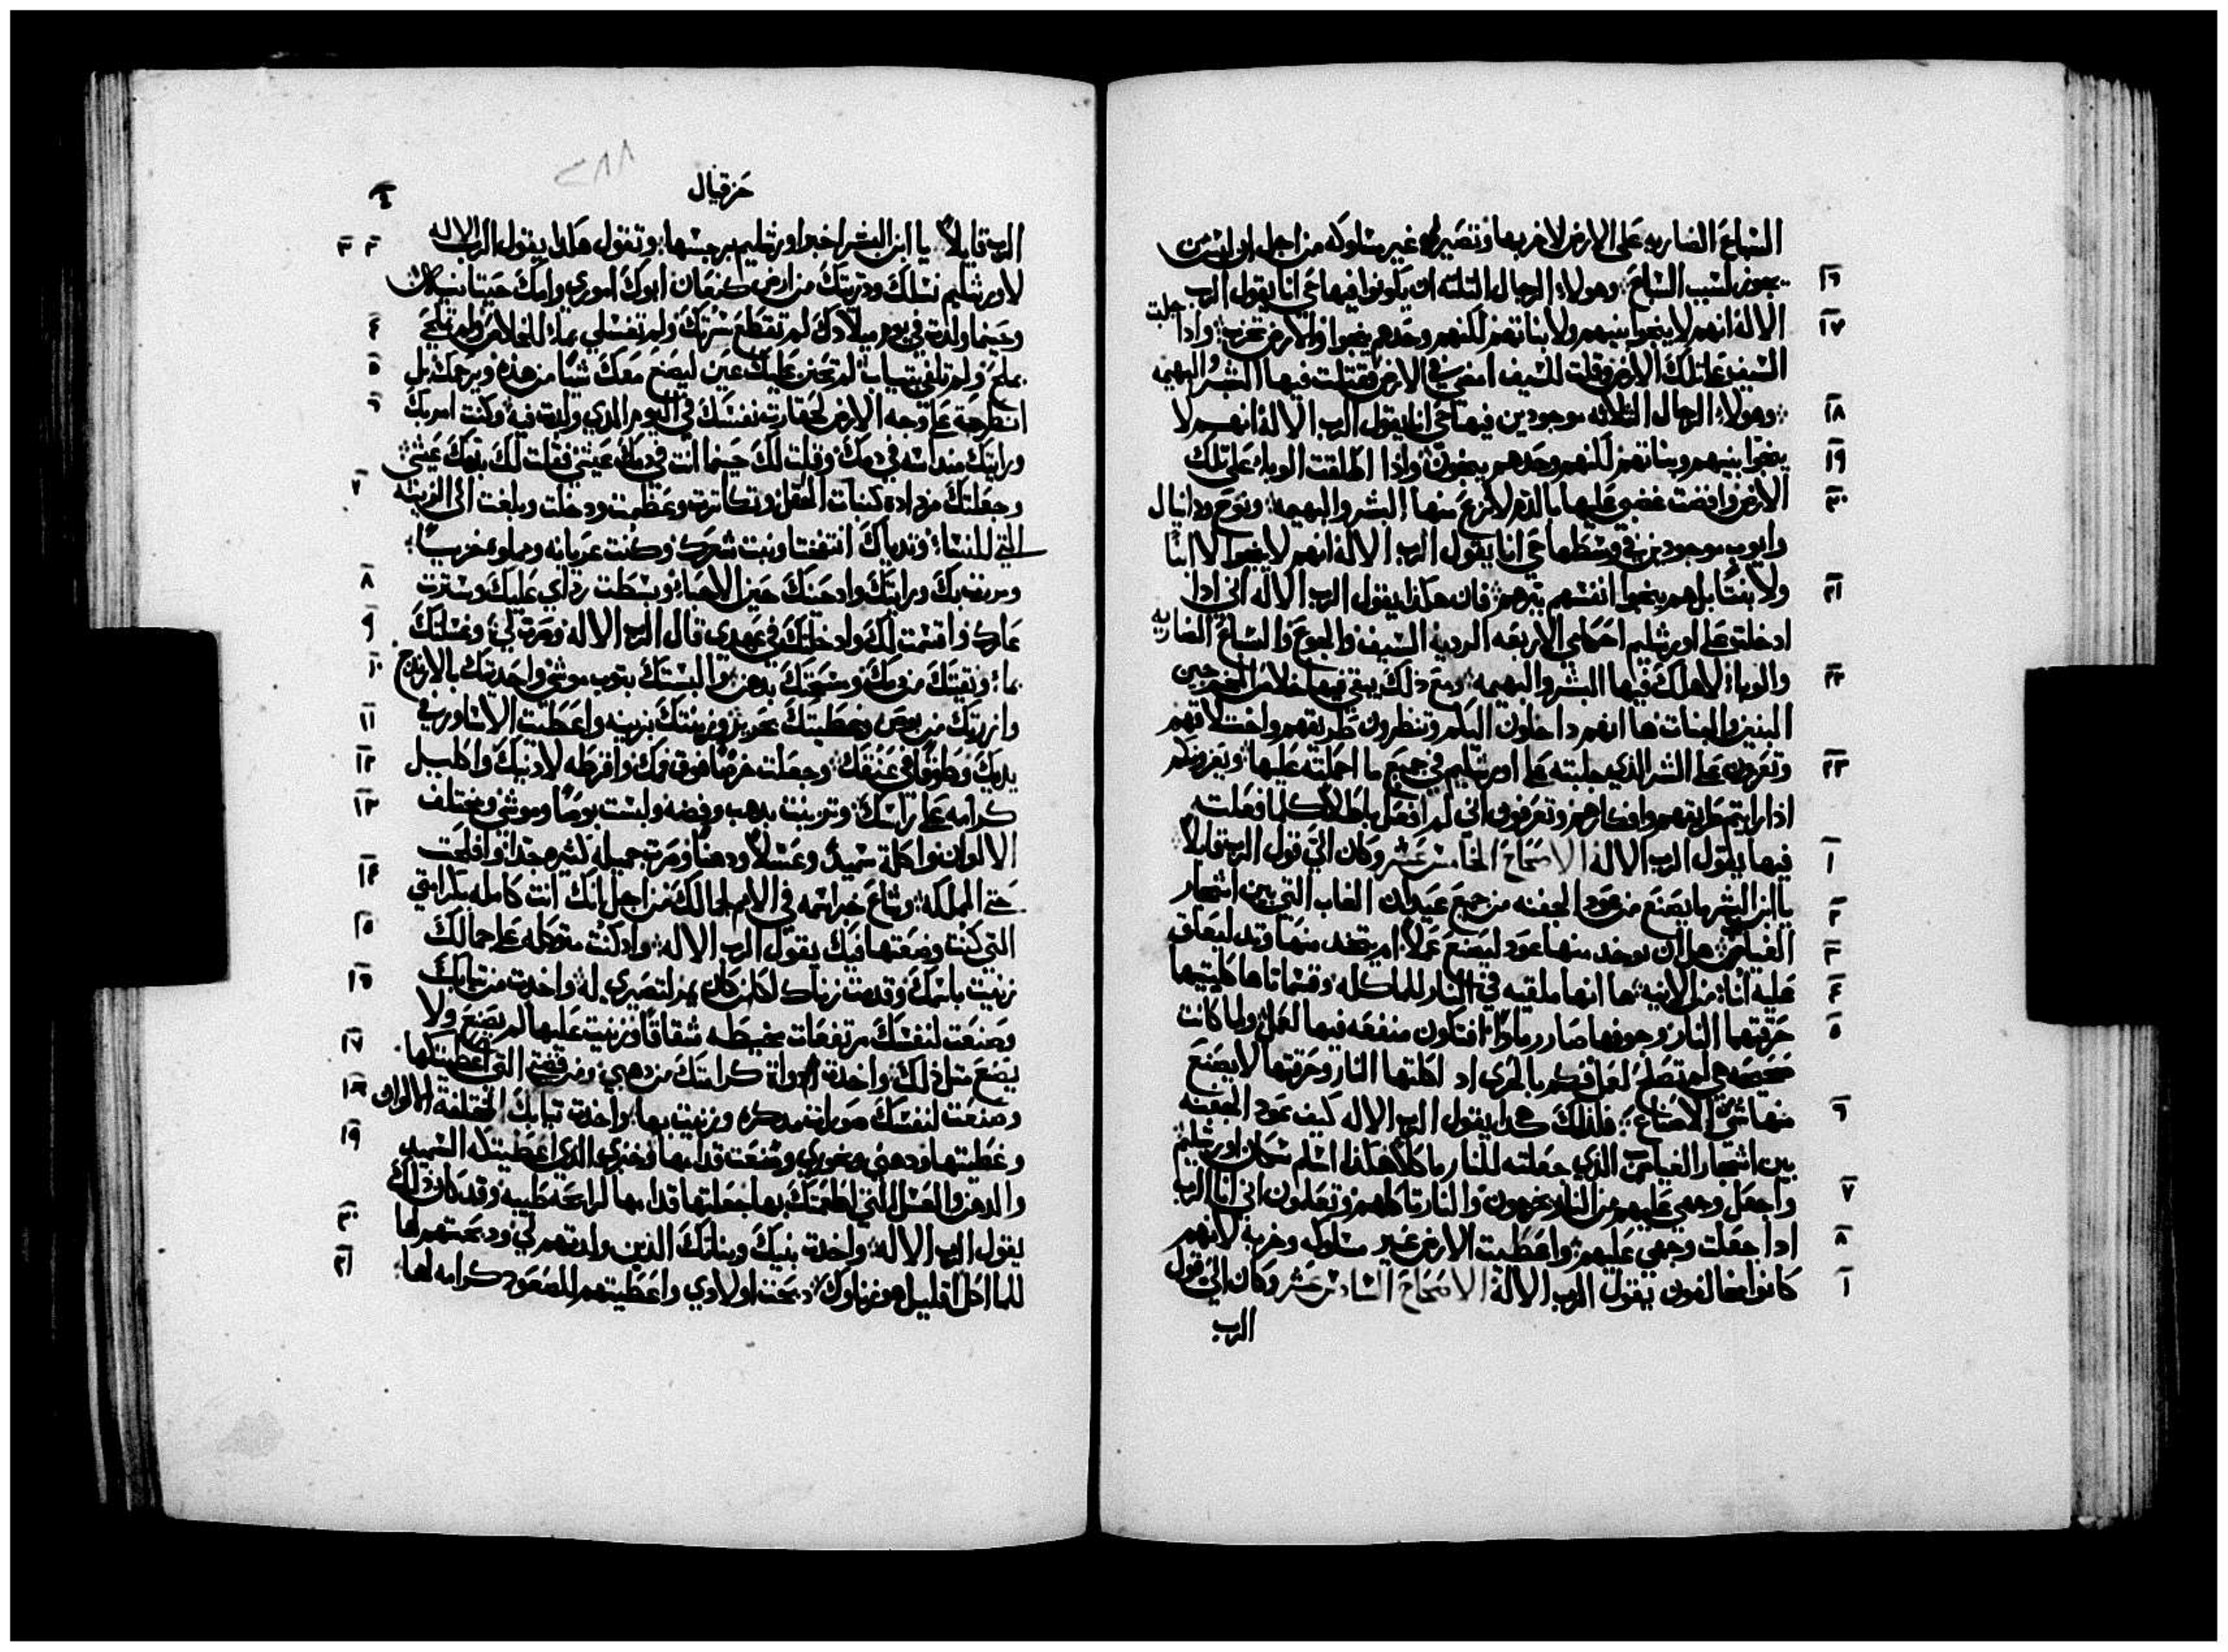 السباع الضاريه على الارض لاخربها وتصير غير مسلوكه من اجل ان ليس من
يجوز لسبب السباع وهولاء الرجال الثلثه ان يكونوا فيها حي انا يقول الرب
١٦
الاله انهم لا ينجوا بنيهم ولا بناتهم لكنهم وحدهم ينجوا والارض تخرب واذا جلبت
١٧
السيف على تلك الارض وقلت للسيف امضي في الارض فقتلت فيها البشر والبهيمه
وهولاء الرجال الثلاثه موجودين فيها حي انا يقول الرب الاله انهم لا
١٨
ينجوا بنيهم وبناتهم لكنهم وحدهم ينجون واذا اطلقت الوباء على تلك
١٩
الارض وافضت غضبي عليها بالدم لانزع منها البشر والبهيمه ونوح ودانيال
٢٠
وايوب موجودين في وسطها حي انا يقول الرب الاله انهم لا ينجوا لا ابنًا
ولا بنتًا بل هم ينجوا انفسهم ببرهم فان هكذا يقول الرب الاله اني اذا
٢١
ادخلت على اورشليم احكامي الاربعه الرديه السيف والجوع والسباع الضاريه
والوباء لاهلك فيها البشر والبهيمه ومع ذلك يبقى فيها خلاص المخرجين
٢٢
البنين والبنات ها انهم داخلون اليكم وتنظرون طريقهم واختلاقهم
وتعزون على الشر الذي جلبته على اورشليم في جميع ما احملته عليها ويعزونكم
٢٣
اذا رايتم طريقهم وافكارهم وتعرفون اني لم افعل باطلًا كلما فعلت
فيها يقول الرب الاله الاصحاح الخامس عشر وكان الي قول الرب قايلًا
١
يا ابن البشر ما يصنع من عود الجفنه من جميع عيدان الغاب التي بين اشجار
٢
الغياض هل ان يوخد منها عود ليصنع عملًا ام يتخد منها وتد ليعلق
٣
عليه انا من الانيه ها انها ملقيه في النار للماكله وقسماتاها كلتيهما
٤
حرقتهما النار وجوفها صار رمادًا افتكون منفعه فيها لعمل ولما كانت
٥
صحيحه هي لم تصلح لعمل فكم بالحرى اد اكلتها النار وحرقتها لا يصنع
منها شي الاصناع فلذلك هكدا يقول الرب الاله كيف عود الجفنه
٦
بين اشجار الغياض الذي جعلته للنار ماكلًا هكذا اسلم سكان اورشليم
واجعل وجهي عليهم من النار يخرجون والنار تاكلهم وتعلمون اني انا الرب
٧
ادا جعلت وجهي عليهم واعطيت الارض غير مسلوكه وخربه لانهم
٨
كانوا مخالفون يقول الرب الاله الاصحاح السادس عشر وكان الي قول
١
الرب
حزقيال
٢٨٨
الرب قايلًا يا ابن البشر اخبر اورشليم برجسها وتقول هكدا يقول الرب الاله
٢ ٣
لاورشليم نسلك ودريتك من ارض كنعان ابوك اموري وامك حيتانيه
وحينما ولدت في يوم ميلادك لم تقطع سرتك ولم تغسلي بماء للخلاص ولم تملحي
٤
بملح ولم تلفي بتياب لم تحن عليك عين ليصنع معك شيًا من هذه ويرحمك بل
٥
انطرحة على وجه الارض لحقارة نفسك في اليوم الدي ولدت فيه وكنت امر بك
٦
ورايتك منداسه في دمك وقلت لك حينما انت في دمك عيشي فقلت لك بدمك عيشي
وجعلتك مزداده كنبات الحقل وتكاثرت وعظمت ودخلت وبلغت الى الزينه
٧
التي للنساء وتدياك انتفختا ونبت شعرك وكنت عريانه ومملوه خزيًا
ومررت بك ورايتك واد حينك حين الاحباء وبسطت رداي عليك وسترت
٨
عارك واقسمت لك وادخلتك في عهدي قال الرب الاله وصرت لي وغسلتك
٩
بماء ونقيتك من دمك ومسحتك بدهن والبستك بتوب موشى واحديتك بالارندج
١٠
وازرتك من بوص وغطيتك بحرير وزينتك بزينه واعطيت الاساور في
١١
يديك وطوقًا في عنقك وجعلت خرصًا فوق فمك واقرطه لادنيك واكليل
١٢
كرامه على راسك وتزينت بدهب وفضه ولبست بوصًا وموشى ومختلف
١٣
الالوان واكلة سميد وعسلًا ودهنًا وصرت جميله كثيره جدًا وافلحت
حتى المملكه وشاع خبر اسمه في الامم لجمالك من اجل انك انت كامله بكرامتي
١٤
التي كنت وضعتها فيك يقول الرب الاله وادكنت متوكله على جمالك
١٥
زنيت باسمك وقدمت زناك لكل من كان يمر لتصيري له واخدت من تيابك
١٦
وصنعت لنفسك مرتفعات مخيطه شقاقًا وزنيت عليها لم يصنع ولا
يصنع متل ذلك واخدة ادواة كرامتك من دهبي ومن فضتي التي اعطيتكها
١٧
وصنعت لنفسك صورًا مدكره وزنيت بها واخدت تيابك المختلفة الالوان
١٨
وغطيتها ودهني وبخوري وضعت قدامها وخبزي الذي اعطيتكه السميد
١٩
والدهن والعسل التي اطعمتك بها جعلتها قدامها لرايحه طيبه وقد كان ذلك
يقول الرب الاله واخدت بنيك وبناتك الذين ولدتهم لي ودبحتهم لها
٢٠
للماكل اقليل هو زناوك دبحت اولادي واعطيتهم للصعود كرامه لها
٢١